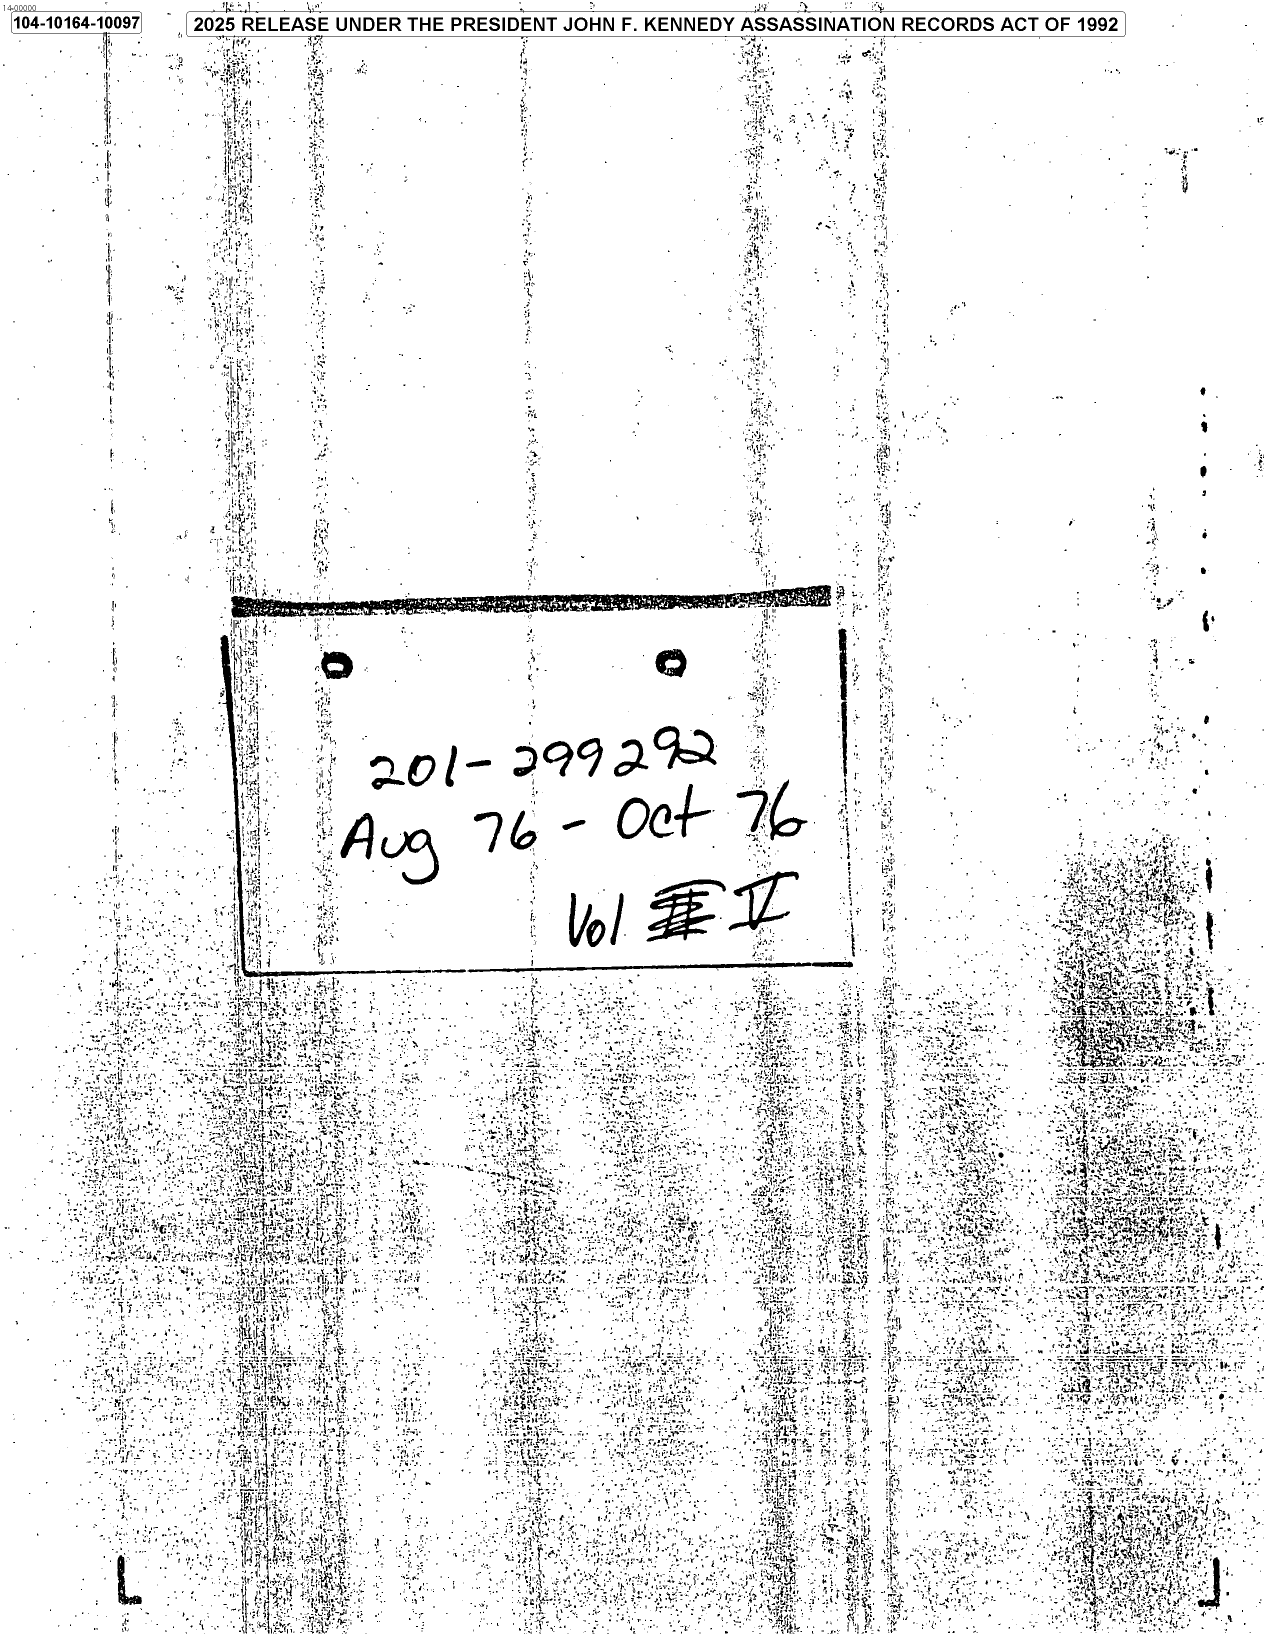 14-00000
104-10164-10097
2025 RELEASE UNDER THE PRESIDENT JOHN F. KENNEDY ASSASSINATION RECORDS ACT OF 1992
201-299292
Aug 76 - Oct 76
Vol V